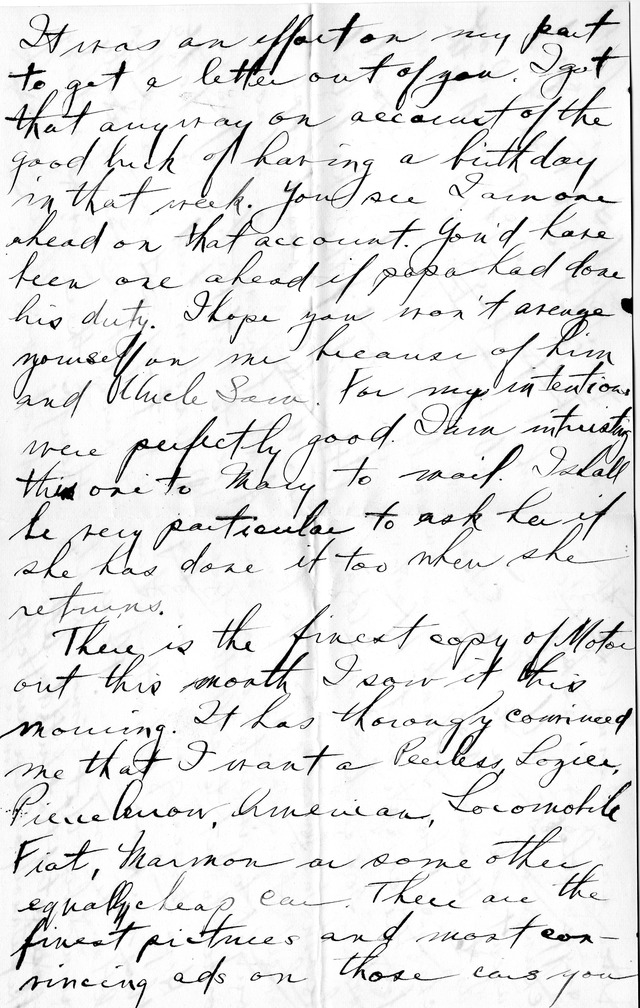 It was an effort on my part
to get a letter out of you. I got
that anyway on account of the
good luck of having a birthday
in that week. You see I am one
ahead on that account. You'd have
been one ahead if papa had done
his duty. I hope you won't avenge
yourself on me because of him
and Uncle Sam. For my intentions
were perfectly good. I am intrusting
this one to Mary to mail. I shall
be very particular to ask her if
she has done it too when she
returns.
There is the finest copy of Motor
out this month I saw it this
morning. It has thorougly convinced
me that I want a Peerless, Lozier,
Pierce Arrow, American, Locomobile
Fiat, Marmon or some other
equally cheap car. There are the
finest pictures and most con-
vincing ads on those cars you